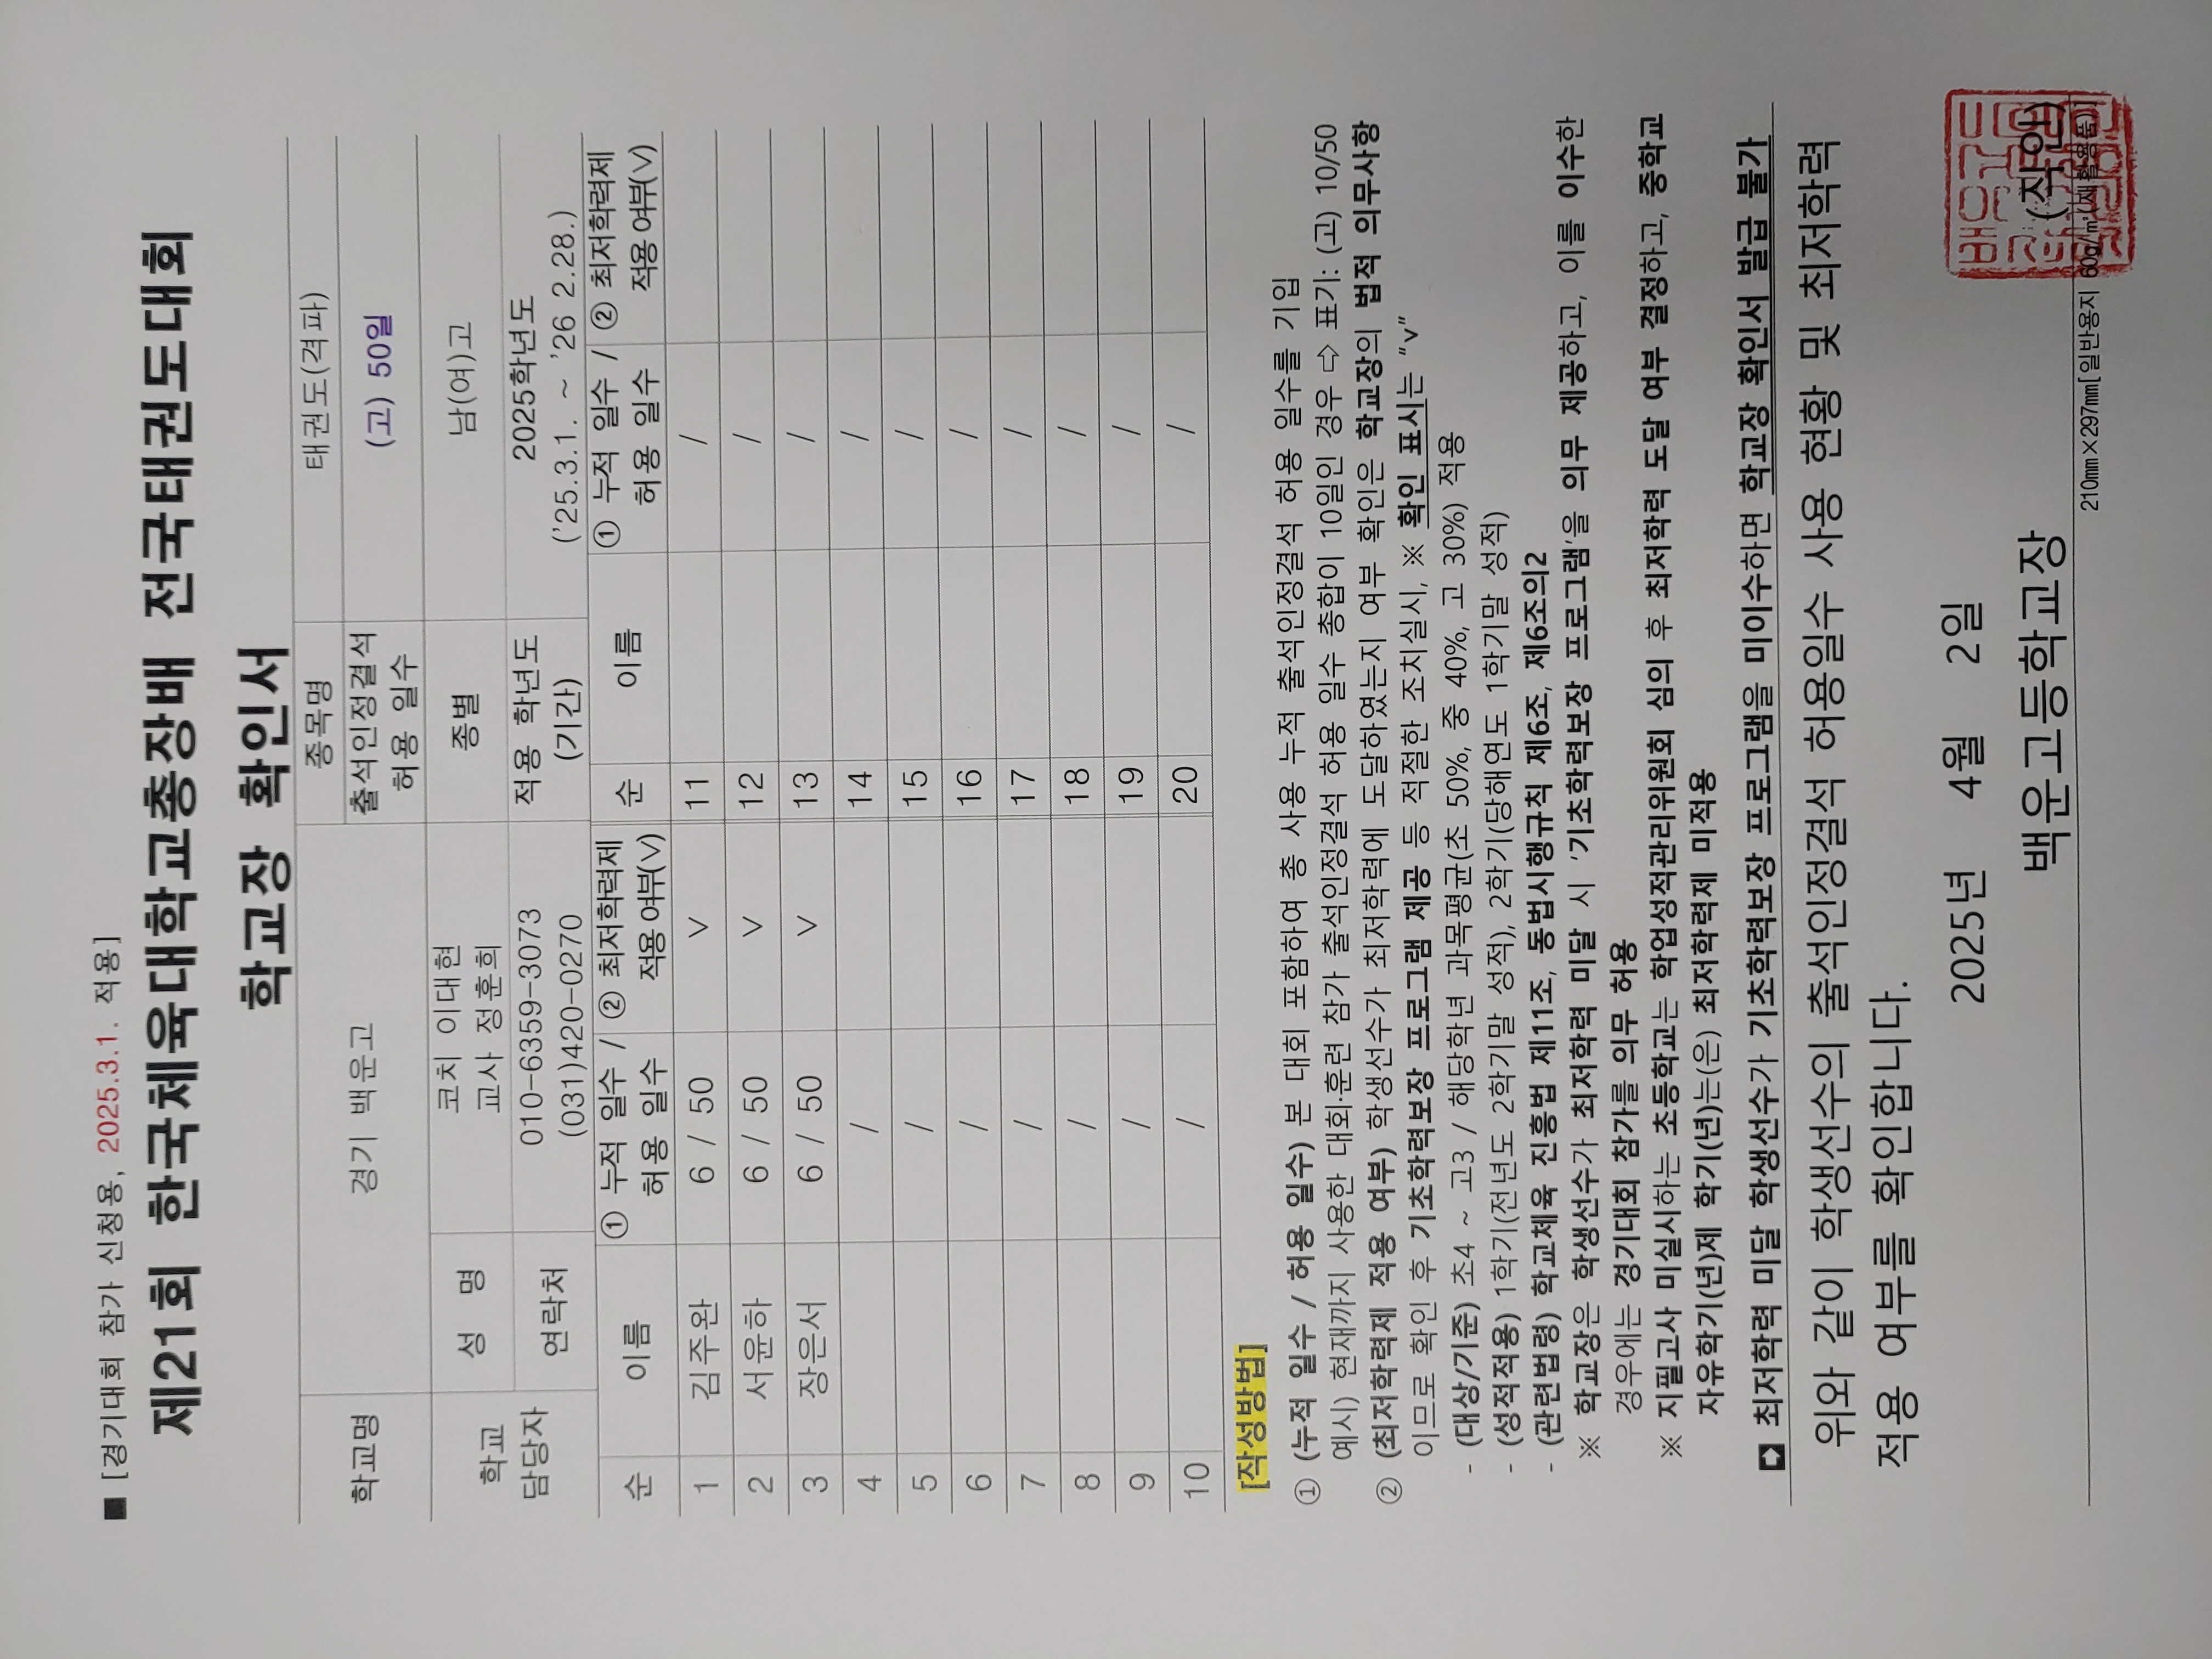 ■ [경기대회 참가 신청용, 2025.3.1. 적용]
제21회 한국체육대학교총장배 전국태권도대회
학교장 확인서
학교명 경기 백운고 종목명 태권도(격파)
출석인정결석 허용 일수 (고) 50일
학교 담당자 성 명 코치 이대현 교사 정훈희 종별 남(여)고
연락처 010-6359-3073 (031)420-0270 적용 학년도 (기간) 2025학년도 ('25.3.1. ~ '26 2.28.)
순 이름 ① 누적 일수 / 허용 일수 ② 최저학력제 적용여부(V) 순 이름 ① 누적 일수 / 허용 일수 ② 최저학력제 적용여부(V)
1 김주완 6 / 50 V 11 /
2 서윤하 6 / 50 V 12 /
3 장은서 6 / 50 V 13 /
4 / 14 /
5 / 15 /
6 / 16 /
7 / 17 /
8 / 18 /
9 / 19 /
10 / 20 /
[작성방법]
① (누적 일수 / 허용 일수) 본 대회 포함하여 총 사용 누적 출석인정결석 허용 일수를 기입
예시) 현재까지 사용한 대회·훈련 참가 출석인정결석 허용 일수 총합이 10일인 경우 ⇨ 표기: (고) 10/50
② (최저학력제 적용 여부) 학생선수가 최저학력에 도달하였는지 여부 확인은 학교장의 법적 의무사항
이므로 확인 후 기초학력보장 프로그램 제공 등 적절한 조치실시, ※ 확인 표시는 "v"
- (대상/기준) 초4 ~ 고3 / 해당학년 과목평균(초 50%, 중 40%, 고 30%) 적용
- (성적적용) 1학기(전년도 2학기말 성적), 2학기(당해연도 1학기말 성적)
- (관련법령) 학교체육 진흥법 제11조, 동법시행규칙 제6조, 제6조의2
※ 학교장은 학생선수가 최저학력 미달 시 '기초학력보장 프로그램'을 의무 제공하고, 이를 이수한
경우에는 경기대회 참가를 의무 허용
※ 지필고사 미실시하는 초등학교는 학업성적관리위원회 심의 후 최저학력 도달 여부 결정하고, 중학교
자유학기(년)제 학기(년)는(은) 최저학력제 미적용
최저학력 미달 학생선수가 기초학력보장 프로그램을 미이수하면 학교장 확인서 발급 불가
위와 같이 학생선수의 출석인정결석 허용일수 사용 현황 및 최저학력
적용 여부를 확인합니다.
2025년 4월 2일
백운고등학교장 (직인)
210㎜×297㎜[일반용지 60g/㎡(재활용품)]